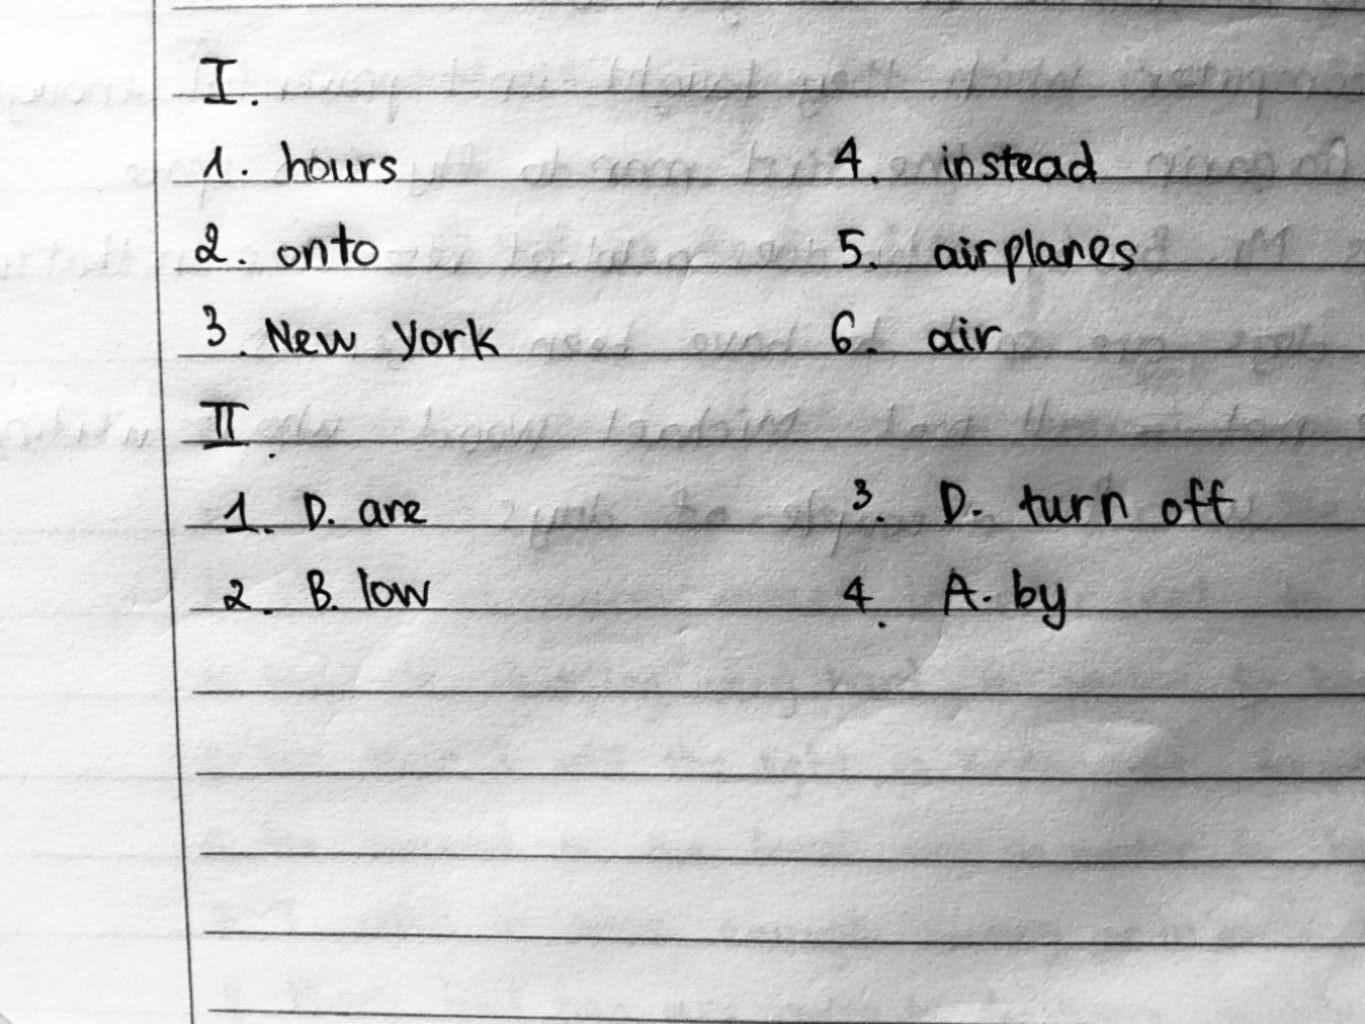 I.
1. hours 4. instead
2. onto 5. airplanes
3. New York 6. air
II.
1. D. are 3. D. turn off
2. B. low 4. A. by